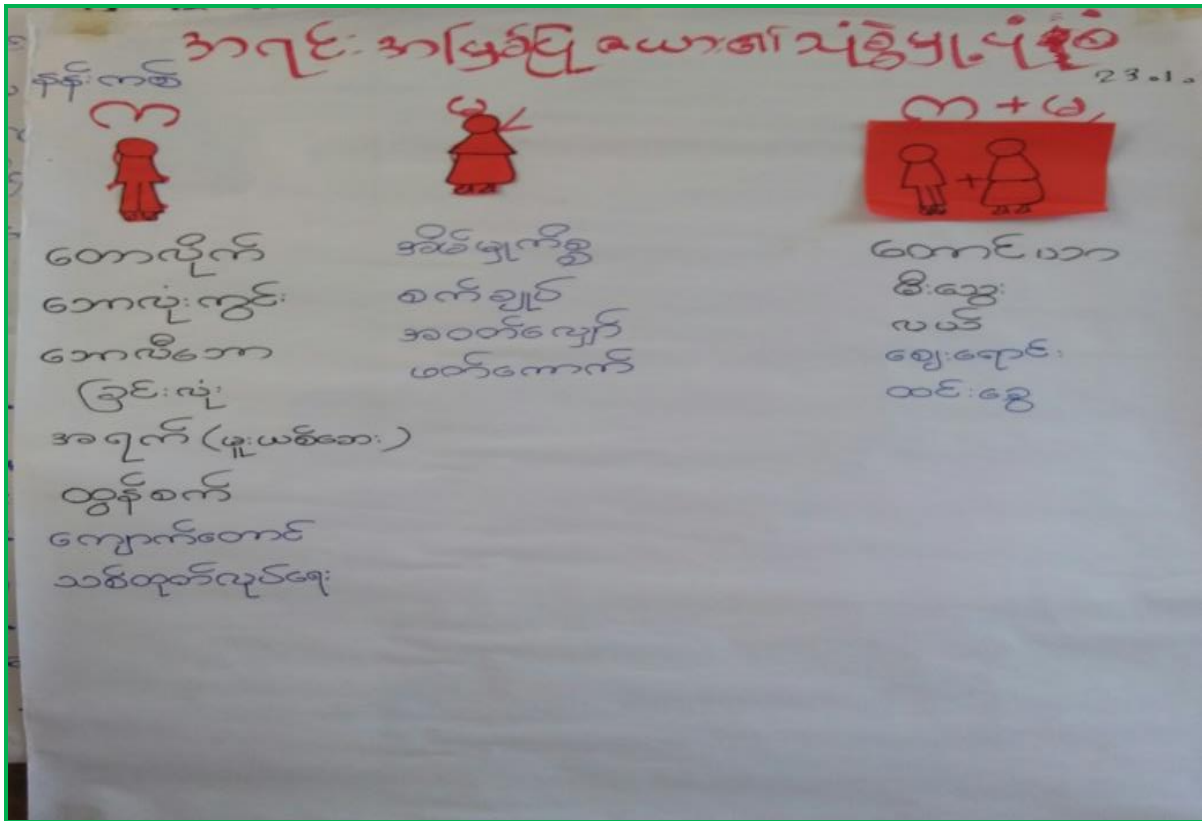 အရင်းအမြစ်ပြု ဇယား၏ သုံးစွဲမှု ပုံစံ
နန်းကစ်
23.1.
က
မ
က + မ
တောလိုက်
ဘောလုံးကွင်း
ဘောလီဘော
ခြင်းလုံး
အရက် (ဖူးယစ်ဆေး)
ထွန်စက်
ကျောက်တောင်
သစ်တုတ်လုပ်ရေး
အိမ်မှုကိစ္စ
စက်ချုပ်
အဝတ်လျှော်
ဖတ်ကောက်
တောင်ယာ
မီးသွေး
လယ်
ဈေးရောင်း
ထင်းခွေ